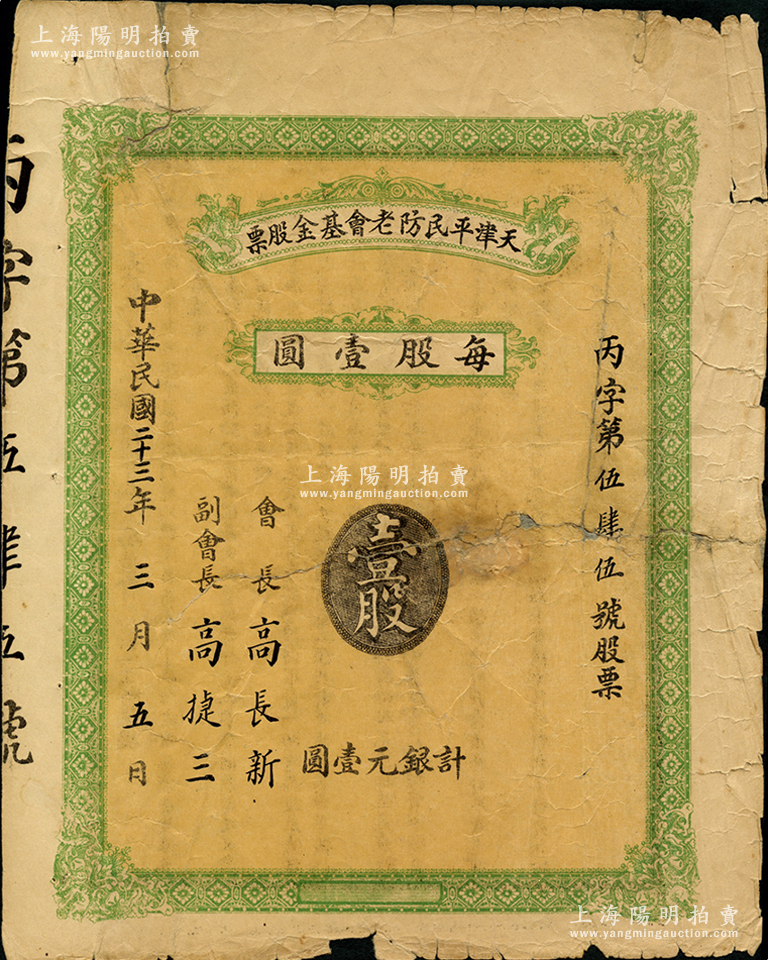 上海陽明拍賣
www.yangmingauction.com
天津平民防老會基金股票
每股壹圓
丙字第伍肆伍號股票
上海陽明拍賣
www.yangmingauction.com
壹股
計銀元壹圓
會長高長新
副會長高捷三
中華民國二十三年三月五日
丙字第伍肆伍號
上海陽明拍賣
www.yangmingauction.com